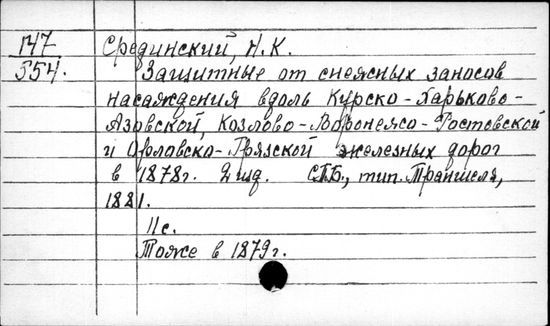 147 Срединский, Н.К.
554. Защитные от снежных заносов
насаждения вдоль Курско-Харьково-
Азовской, Козлово-Воронежско-Ростовской
и Орловско-Грязской железных дорог
в 1878г. 2 изд. СПБ., тип. Траншеля,
1881.
11с.
Тоже в 1879г.